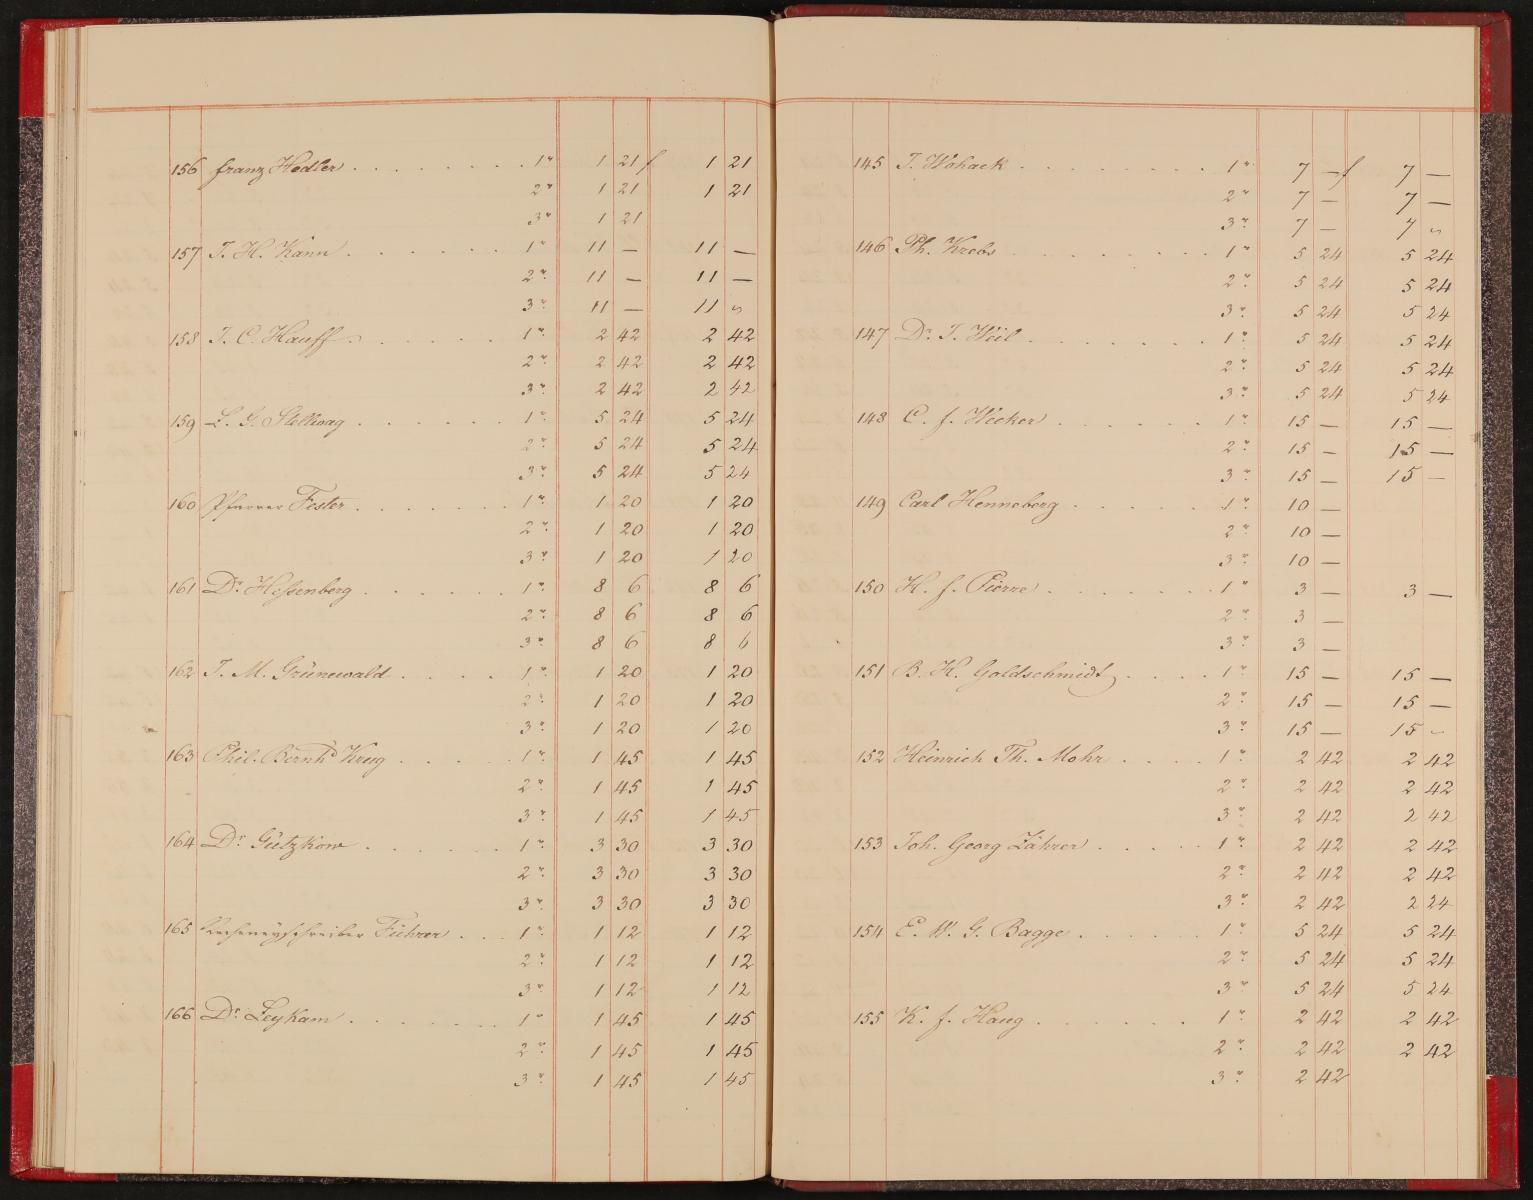 156 Franz Hedler . . . . . . . . 1r 1 21 f 1 21
2r 1 21 1 21
3r 1 21
157 J. H. Kann . . . . . . 1r 11 — 11 —
2r 11 — 11 —
3r 11 — 11 "
158 J. C. Hauff . . . . . . 1r 2 42 2 42
2r 2 42 2 42
3r 2 42 2 42
159 L. G. Stellwag . . . . . . 1r 5 24 5 24
2r 5 24 5 24
3r 5 24 5 24
160 Pfarrer Fester . . . . . . 1r 1 20 1 20
2r 1 20 1 20
3r 1 20 1 20
161 Dr. Hessenberg . . . . . . 1r 8 6 8 6
2r 8 6 8 6
3r 8 6 8 6
162 J. M. Grünewald . . . . 1r 1 20 1 20
2r 1 20 1 20
3r 1 20 1 20
163 Phil. Bernhd Krug . . . . . 1r 1 45 1 45
2r 1 45 1 45
3r 1 45 1 45
164 Dr. Gützkow . . . . . . 1r 3 30 3 30
2r 3 30 3 30
3r 3 30 3 30
165 Recheneyschreiber Führer . . . 1r 1 12 1 12
2r 1 12 1 12
3r 1 12 1 12
166 Dr. Leykam . . . . . . . 1r 1 45 1 45
2r 1 45 1 45
3r 1 45 1 45
145 J. Wohack . . . . . . . . 1r 7 — f 7 —
2r 7 — 7 —
3r 7 — 7 "
146 Ph. Krebs . . . . . . . . 1r 5 24 5 24
2r 5 24 5 24
3r 5 24 5 24
147 Dr. J. Weil . . . . . . . 1r 5 24 5 24
2r 5 24 5 24
3r 5 24 5 24
148 C. F. Wecker . . . . . . 1r 15 — 15 —
2r 15 — 15 —
3r 15 — 15 —
149 Carl Henneberg . . . . . 1r 10 —
2r 10 —
3r 10 —
150 H. F. Pierre . . . . . . . 1r 3 — 3 —
2r 3 —
3r 3 —
151 B. H. Goldschmidt . . . . 1r 15 — 15 —
2r 15 — 15 —
3r 15 — 15 "
152 Heinrich Th. Mohr . . . . 1r 2 42 2 42
2r 2 42 2 42
3r 2 42 2 42
153 Joh. Georg Zährer . . . . . 1r 2 42 2 42
2r 2 42 2 42
3r 2 42 2 24
154 E. W. G. Bagge . . . . . . 1r 5 24 5 24
2r 5 24 5 24
3r 5 24 5 24
155 K. F. Haug . . . . . . 1r 2 42 2 42
2r 2 42 2 42
3r 2 42